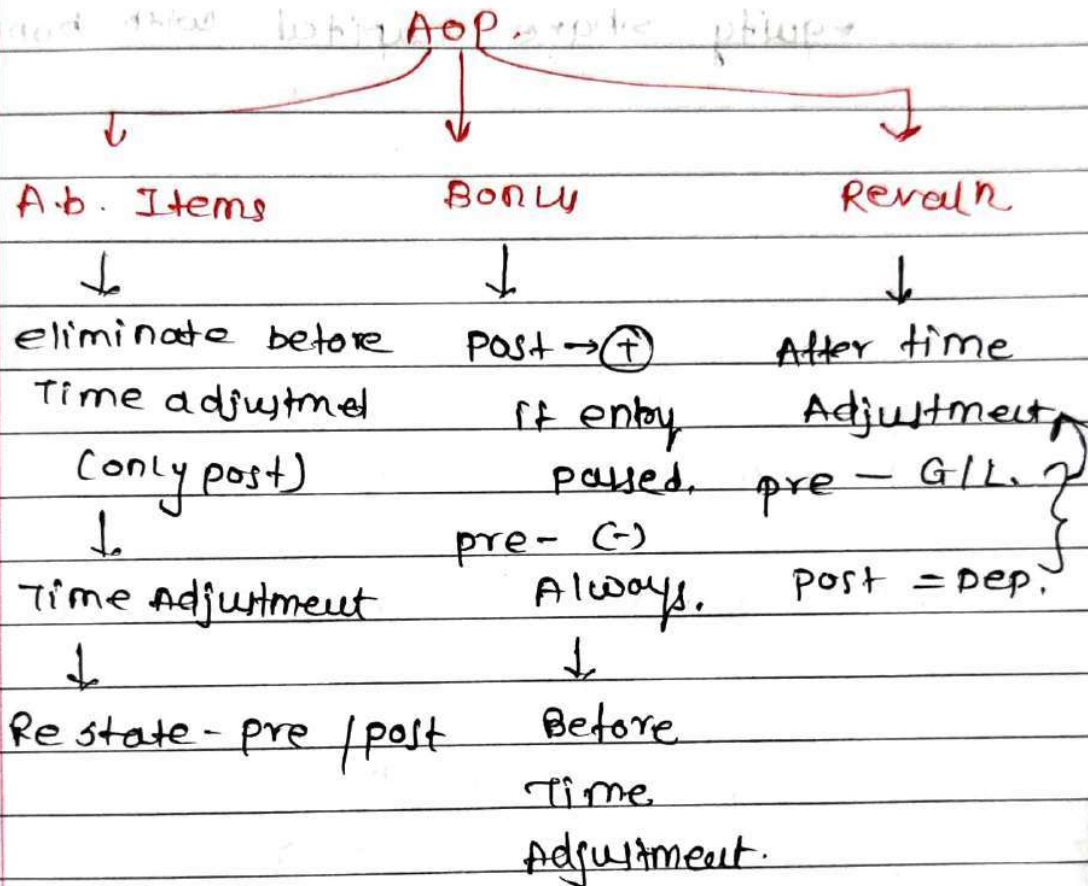 AOP.
A.b. Items
Bonus
Revaln
eliminate before
Time adjustmet
(only post)
Time Adjustment
Re state - pre / post
Post → (+)
if entry
passed.
pre - (-)
Always.
Before
Time
Adjustment.
After time
Adjustment
pre - G/L.
post = Dep.